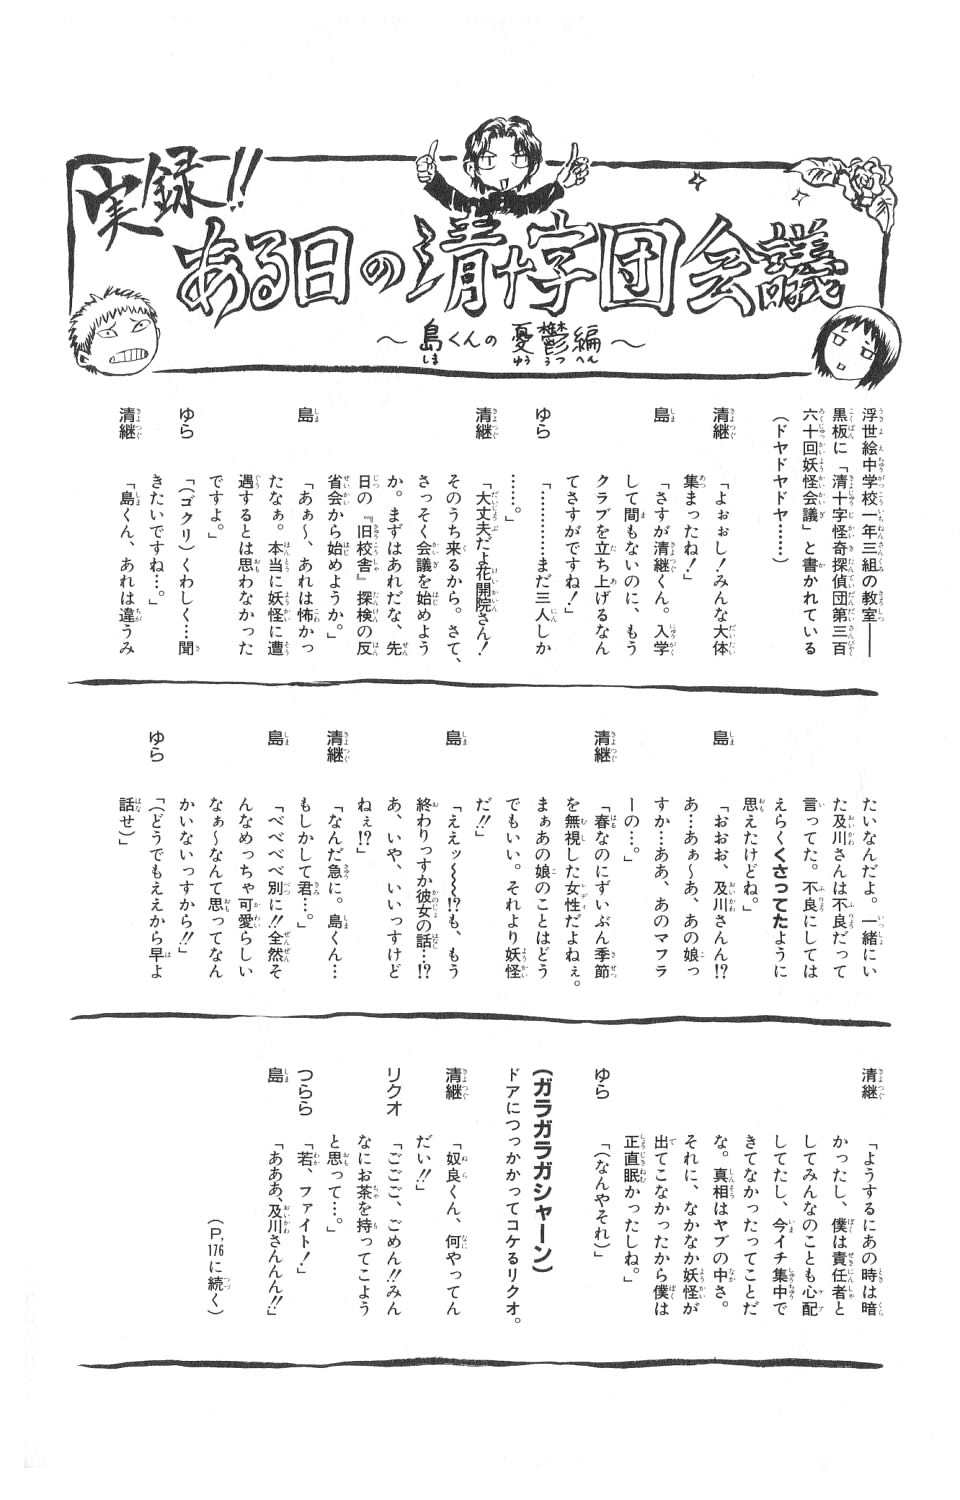 実録!!
ある日の清十字団会議
～島くんの憂鬱編～
浮世絵中学校一年三組の教室――
黒板に「清十字怪奇探偵団第三百
六十回妖怪会議」と書かれている
(ドヤドヤドヤ……)
清継「よぉぉし!みんな大体
集まったね!」
島「さすが清継くん。入学
して間もないのに、もう
クラブを立ち上げるなん
てさすがですね!」
ゆら「…………まだ三人しか
……。」
清継「大丈夫だよ花開院さん!
そのうち来るから。さて、
さっそく会議を始めよう
か。まずはあれだな、先
日の『旧校舎』探検の反
省会から始めようか。」
島「あぁ～、あれは怖かっ
たなぁ。本当に妖怪に遭
遇するとは思わなかった
ですよ。」
ゆら「(ゴクリ)くわしく…聞
きたいですね…。」
清継「島くん、あれは違うみ
たいなんだよ。一緒にい
た及川さんは不良だって
言ってた。不良にしては
えらくくさってたように
思えたけどね。」
島「おおお、及川さん!?
あ…あぁ～あ、あの娘っ
すか…ああ、あのマフラ
ーの…。」
清継「春なのにずいぶん季節
を無視した女性だよねぇ。
まぁあの娘のことはどう
でもいい。それより妖怪
だ!!」
島「ええッ～～!?も、もう
終わりっすか彼女の話…!?
あ、いや、いいっすけど
ねぇ!?
清継「なんだ急に。島くん…
もしかして君…。」
島「べべべべ別に!!全然そ
んなめっちゃ可愛らしい
なぁ～なんて思ってなん
かいないっすから!!」
ゆら「(どうでもええから早よ
話せ)」
清継「ようするにあの時は暗
かったし、僕は責任者と
してみんなのことも心配
してたし、今イチ集中で
きてなかったってことだ
な。真相はヤブの中さ。
それに、なかなか妖怪が
出てこなかったから僕は
正直眠かったしね。」
ゆら「(なんやそれ)」
(ガラガラガシャーン)
ドアにつっかかってコケるリクオ。
清継「奴良くん、何やってん
だい!!」
リクオ「ごごご、ごめん!!みん
なにお茶を持ってこよう
と思って…。」
つらら「若、ファイト!」
島「あああ、及川さんんん!!」
(P.176に続く)